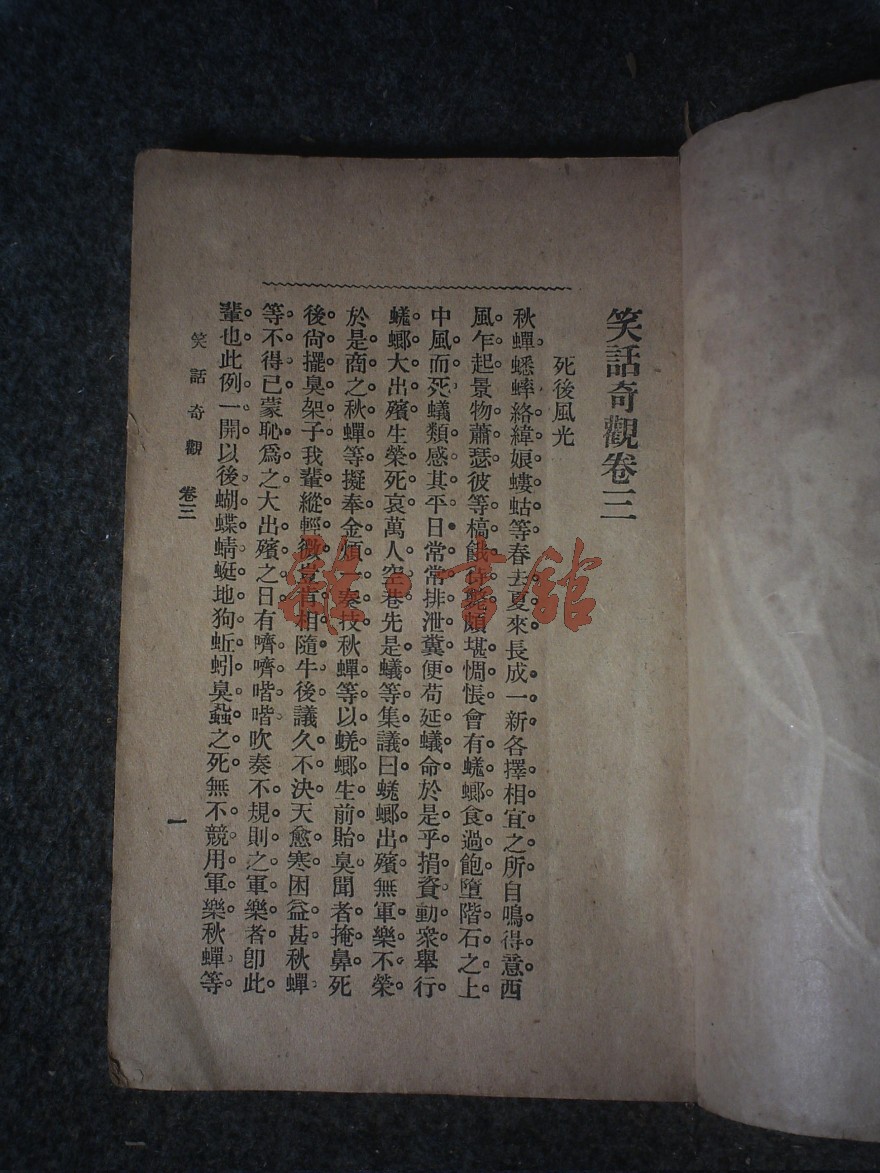 笑話奇觀卷三
死後風光
秋蟬蟋蟀絡緯娘螻蛄等春去夏來長成一新各擇相宜之所自鳴得意。西
風乍起景物蕭瑟彼等槁餓待斃頗堪惆悵會有蜣螂食過飽墮階石之上
中風而死蟻類感其平日常常排泄糞便苟延蟻命於是乎捐資動衆舉行
蜣螂大出殯生榮死哀萬人空巷先是蟻等集議曰蜣螂出殯無軍樂不榮
於是商之秋蟬等擬奉金煩一奏技秋蟬等以蜣螂生前貽臭聞者掩鼻死
後尙擺臭架子我輩縱輕微豈肯相隨牛後議久不決天愈寒困益甚秋蟬
等不得已蒙恥爲之大出殯之日有嚌嚌喈喈吹奏不規則之軍樂者卽此
輩也此例一開以後蝴蝶蜻蜓地狗蚯蚓臭蝨之死無不競用軍樂秋蟬等
笑話奇觀 卷三
一
雜·書館